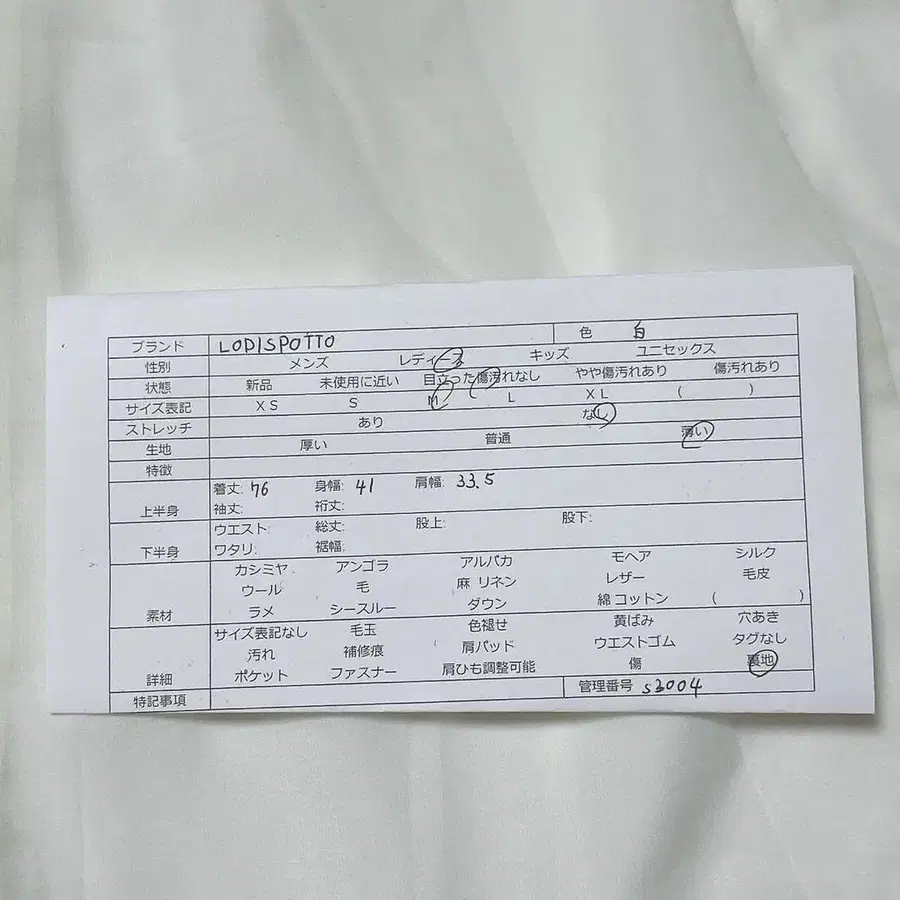 ブランド LODISPOTTO 色 白
性別 メンズ レディース キッズ ユニセックス
状態 新品 未使用に近い 目立った傷汚れなし やや傷汚れあり 傷汚れあり
サイズ表記 XS S M L XL ( )
ストレッチ あり なし
生地 厚い 普通 薄い
特徴
上半身 着丈: 76 身幅: 41 肩幅: 33.5
袖丈: 裄丈:
下半身 ウエスト: 総丈: 股上: 股下:
ワタリ: 裾幅:
素材 カシミヤ アンゴラ アルパカ モヘア シルク
ウール 毛 麻 リネン レザー 毛皮
ラメ シースルー ダウン 綿 コットン ( )
詳細 サイズ表記なし 毛玉 色褪せ 黄ばみ 穴あき
汚れ 補修痕 肩パッド ウエストゴム タグなし
ポケット ファスナー 肩ひも調整可能 傷 裏地
特記事項 管理番号 s3004